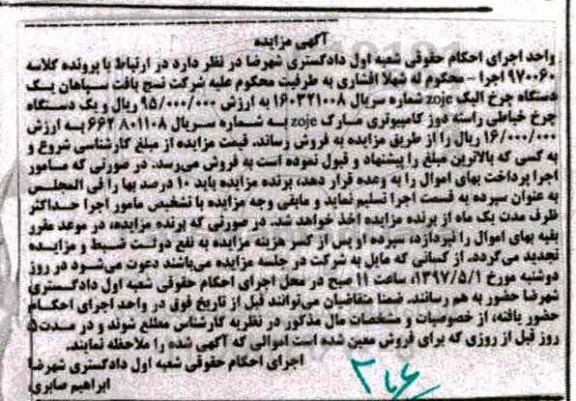 آگهی مزایده
واحد اجرای احکام حقوقی شعبه اول دادگستری شهرضا در نظر دارد در ارتباط با پرونده کلاسه
۹۷۰۰۶۰ اجرا - محکوم له شهلا افشاری به طرفیت محکوم علیه شرکت نسج بافت سپاهان یک
دستگاه چرخ الیک zoje شماره سریال ۱۶۰۳۲۱۰۰۸ به ارزش ۹۵/۰۰۰/۰۰۰ ریال و یک دستگاه
چرخ خیاطی راسته دوز کامپیوتری مارک zoje به شماره سریال ۶۶۲۸۰۱۱۰۸ به ارزش
۱۶/۰۰۰/۰۰۰ ریال را از طریق مزایده به فروش رساند. قیمت مزایده از مبلغ کارشناسی شروع و
به کسی که بالاترین مبلغ را پیشنهاد و قبول نموده است به فروش می‌رسد. در صورتی که مامور
اجرا پرداخت بهای اموال را به وعده قرار دهد، برنده مزایده باید ۱۰ درصد بها را فی المجلس
به عنوان سپرده به قسمت اجرا تسلیم نماید و مابقی وجه مزایده با تشخیص مامور اجرا حداکثر
ظرف مدت یک ماه از برنده مزایده اخذ خواهد شد. در صورتی که برنده مزایده، در موعد مقرر
بقیه بهای اموال را نپردازد، سپرده او پس از کسر هزینه مزایده به نفع دولت ضبط و مزایده
تجدید می‌گردد. از کسانی که مایل به شرکت در جلسه مزایده می‌باشند دعوت می‌شود در روز
دوشنبه مورخ ۱۳۹۷/۵/۱، ساعت ۱۱ صبح در محل اجرای احکام حقوقی شعبه اول دادگستری
شهرضا حضور به هم رسانند. ضمنا متقاضیان می‌توانند قبل از تاریخ فوق در واحد اجرای احکام
حضور یافته، از خصوصیات و مشخصات مال مذکور در نظریه کارشناس مطلع شوند و در مدت ۵
روز قبل از روزی که برای فروش معین شده است اموالی که آگهی شده را ملاحظه نمایند.
اجرای احکام حقوقی شعبه اول دادگستری شهرضا
ابراهیم صابری